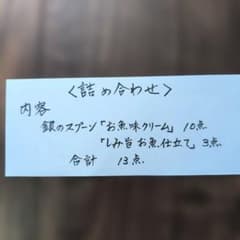 〈詰め合わせ〉
内容
銀のスプーン「お魚味クリーム」 10点
「しみ旨 お魚仕立て」 3点
合計 13点